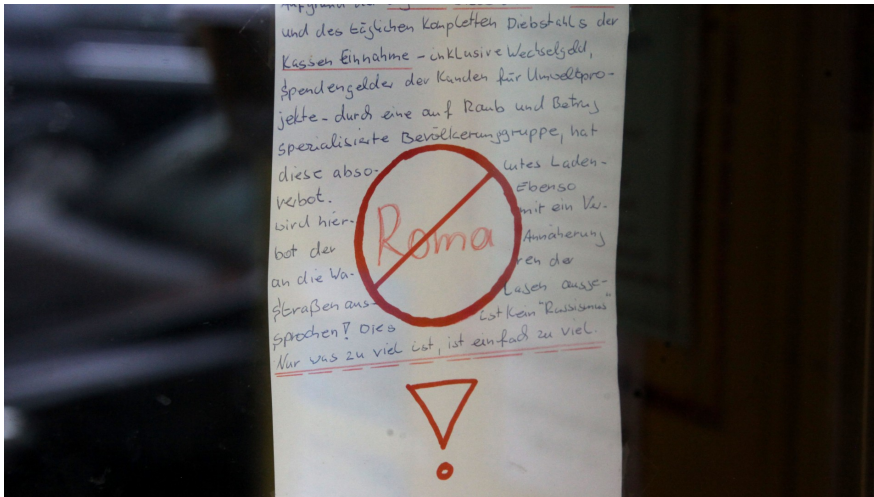 und des täglichen Kompletten Diebstahls der
Kassen Einnahme - inklusive Wechselgeld,
Spendengelder der Kunden für Umweltpro-
jekte - durch eine auf Raub und Betrug
spezialisierte Bevölkerungsgruppe, hat
diese abso- lutes Laden-
verbot. Ebenso
wird hier- mit ein Ver-
bot der Annäherung
an die Wa- ren der
Straßen aus- lagen ausge-
sprochen! Dies ist kein "Rassismus"
Nur was zu viel ist, ist einfach zu viel.
Roma